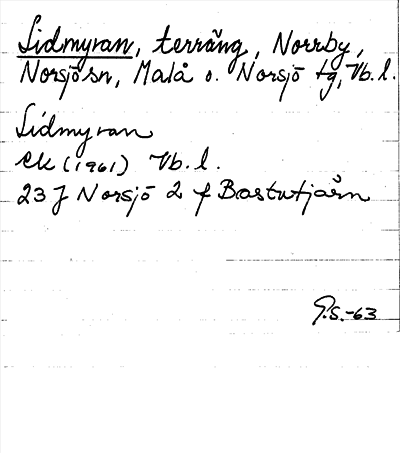 Lidmyran, terräng, Norrby,
Norsjö sn, Malå o. Norsjö tg, Vb.l.
Lidmyran
ek (1961) Vb.l.
23 J Norsjö 2 f Bastutjärn
G.S.-63